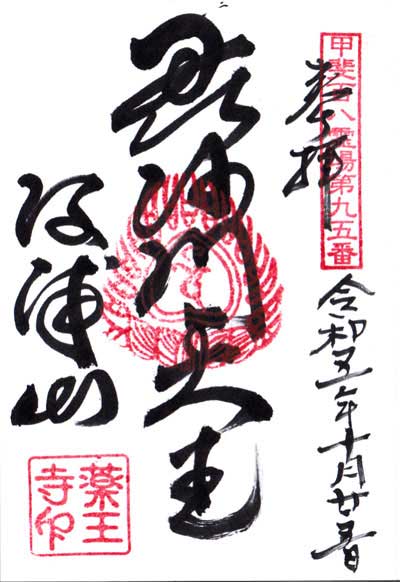 甲斐百八霊場第九五番
奉拝
令和五年十月廿日
毘沙門天王
河浦山
薬王寺印